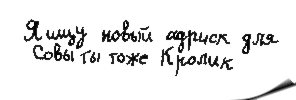 Я ищу новый адриск для
Совы ты тоже Кролик